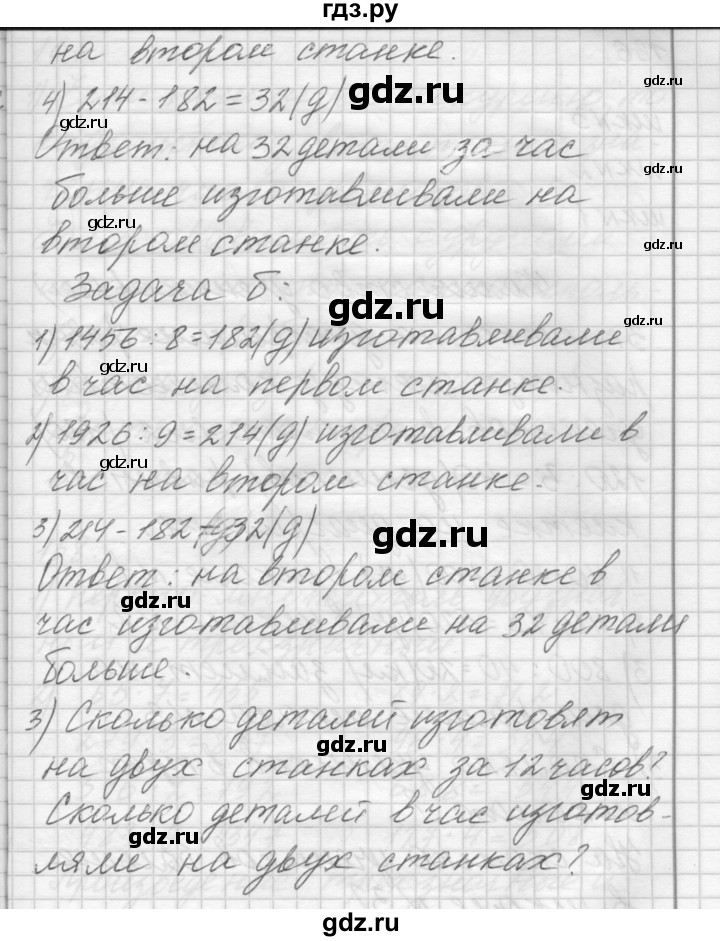 гдз.ру
на втором станке.
4) 214 - 182 = 32(д)
gdz.ru
gdz.ru
Ответ: на 32 детали за час
gdz.ru
больше изготавливали на
gdz.ru
gdz.ru
втором станке.
Задача б:
gdz.ru
1) 1456 : 8 = 182(д) изготавливали
gdz.ru
в час на первом станке.
2) 1926 : 9 = 214(д) изготавливали в
gdz.ru
час на втором станке.
3) 214 - 182 = 32(д)
gdz.ru
Ответ: на втором станке в
gdz.ru
час изготавливали на 32 детали
больше.
3) Сколько деталей изготовят
gdz.ru
на двух станках за 12 часов?
gdz.ru
Сколько деталей в час изготов-
gdz.ru
ляли на двух станках?
gdz.ru